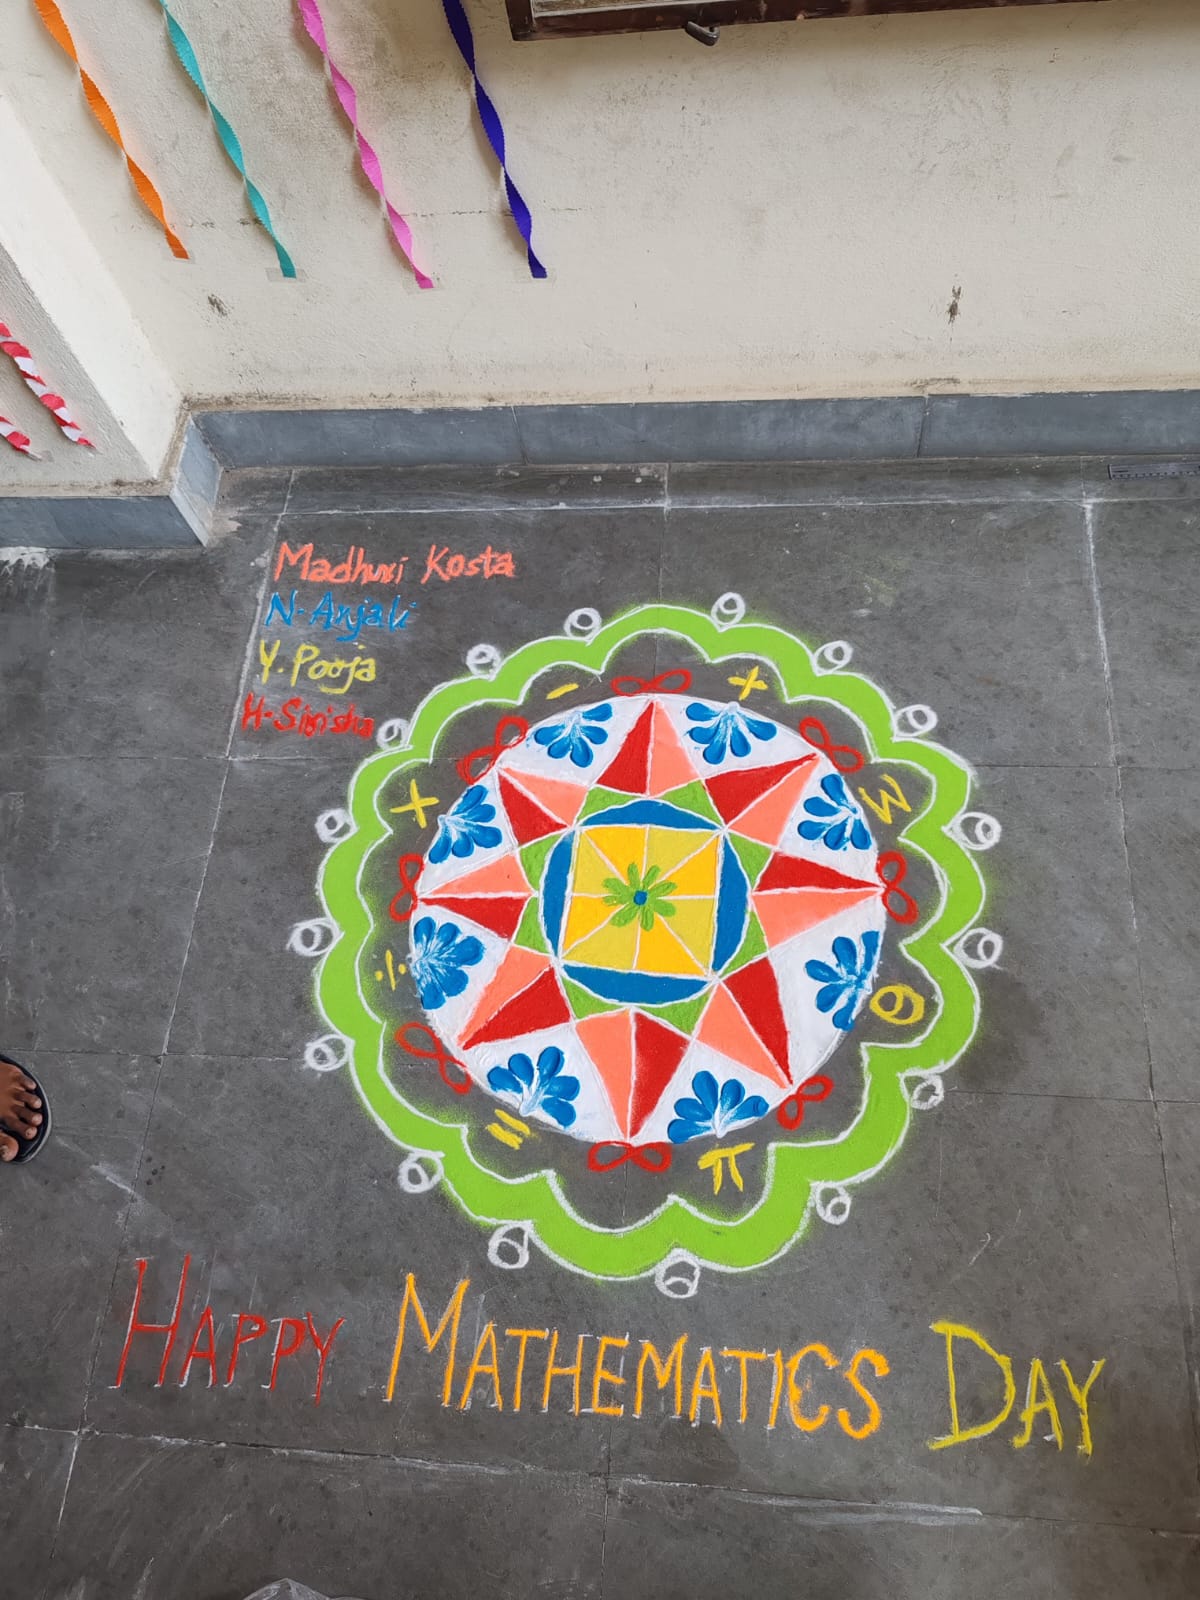 Madhuri Kosta
N. Anjali
Y. Pooja
H. Sirisha
- +
× Σ
÷ θ
= π
HAPPY MATHEMATICS DAY